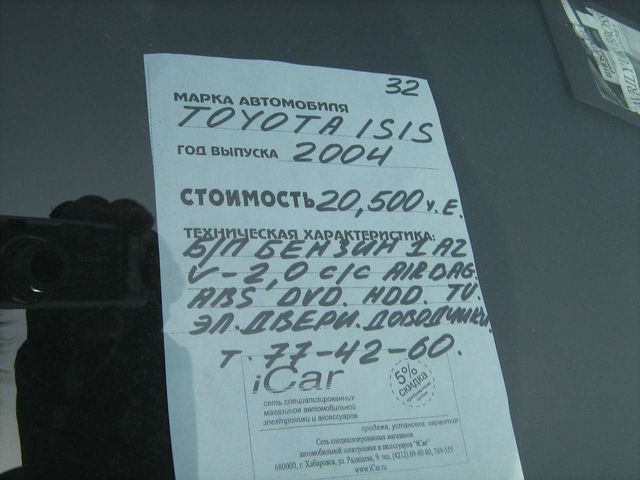 32
МАРКА АВТОМОБИЛЯ
TOYOTA ISIS
ГОД ВЫПУСКА 2004
СТОИМОСТЬ 20,500 у.Е.
ТЕХНИЧЕСКАЯ ХАРАКТЕРИСТИКА:
Б/П БЕНЗИН 1 AZ
V-2,0 С/С AIRBAG.
ABS DVD. HDD. TV.
ЭЛ.ДВЕРИ.ДОВОДЧИКИ.
Т. 77-42-60.
iCar
5%
скидка
сеть специализированных
магазинов автомобильной
электроники и аксессуаров
продажа, установка, гарантия
Сеть специализированных магазинов
автомобильной электроники и аксессуаров "iCar"
680000, г. Хабаровск, ул. Радищева, 9 тел. (4212) 69-80-80, 789-555
www.iCar.ru